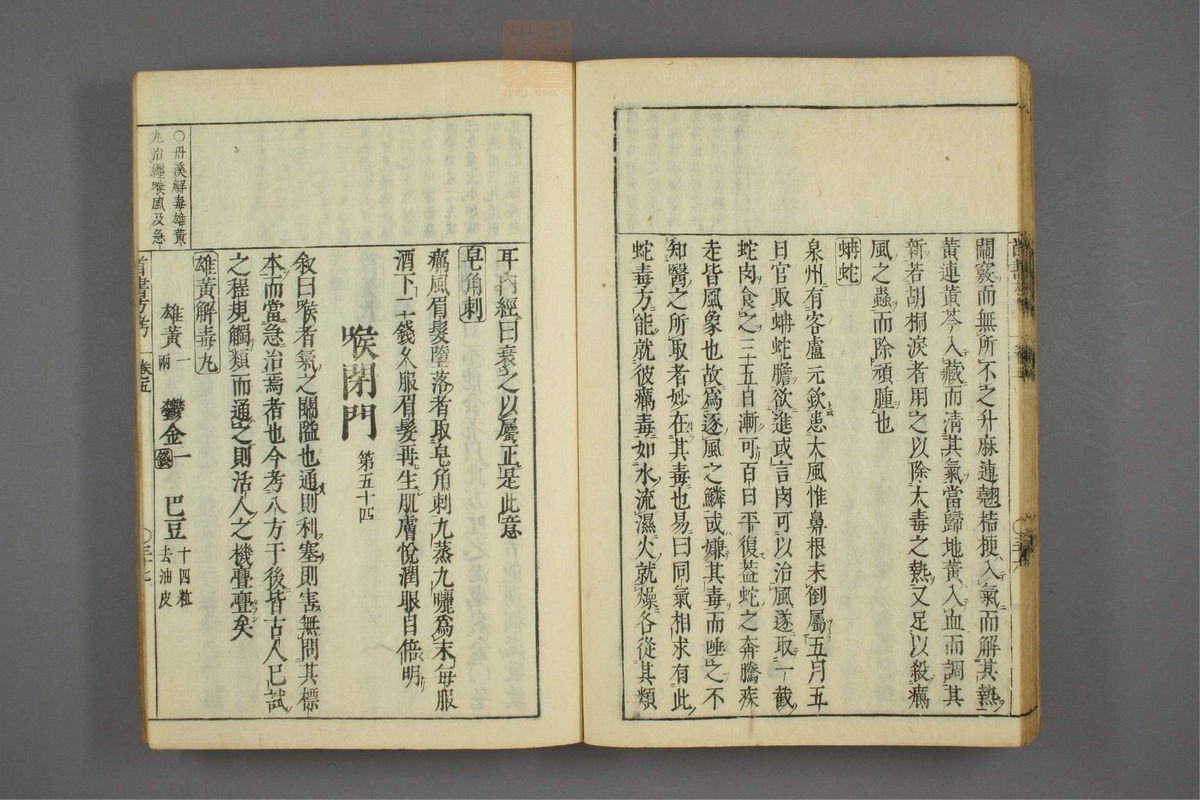 關竅而無所不之升麻連翹桔梗入氣而解其熱
黃連黃芩入藏而清其氣當歸地黃入血而調其
新若胡桐淚者用之以除大毒之熱又足以殺癘
風之蟲而除頑腫也
蝳蛇
泉州有客盧元欽患大風惟鼻根未倒屬五月五
日官取蚺蛇膽欲進或言肉可以治風遂取一截
蛇肉食之三十五日漸可百日平復蓋蛇之奔騰疾
走皆風象也故爲逐風之鱗或嫌其毒而唾之不
知醫之所取者妙在其毒也易曰同氣相求有此
蛇毒方能就彼癘毒如水流濕火就燥各從其類
耳內經曰衰之以屬正是此意
皂角刺
癘風眉髮墮落者取皂角刺九蒸九曬爲末每服
酒下二錢久服眉髮再生肌膚悅潤眼目倍明
喉閉門 第五十四
敘曰喉者氣之關隘也通則利塞則害無問其標
本而當急治焉者也今考八方于後皆古人已試
之程規觸類而通之則活人之機亹亹矣
雄黃解毒丸
雄黃一兩 鬱金一錢 巴豆十四粒去油皮
〇丹溪解毒雄黃
丸治纏喉風及急